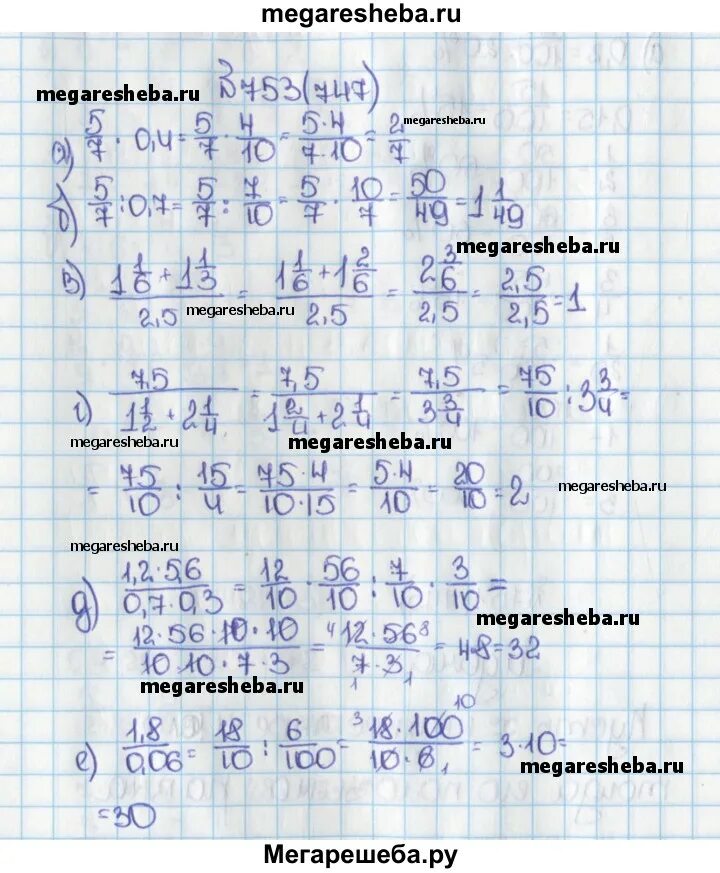 megaresheba.ru
№753(747)
megaresheba.ru
а) 5/7 · 0,4 = 5/7 · 4/10 = 5·4/7·10 = 2/7 megaresheba.ru
б) 5/7 : 0,7 = 5/7 : 7/10 = 5/7 · 10/7 = 50/49 = 1 1/49
megaresheba.ru
в) 1 1/6 + 1 1/3 / 2,5 = 1 1/6 + 1 2/6 / 2,5 = 2 3/6 / 2,5 = 2,5/2,5 = 1
megaresheba.ru
г) 7,5 / 1 1/2 + 2 1/4 = 7,5 / 1 2/4 + 2 1/4 = 7,5 / 3 3/4 = 75/10 : 3 3/4 =
megaresheba.ru megaresheba.ru
= 75/10 : 15/4 = 75·4/10·15 = 5·4/10 = 20/10 = 2 megaresheba.ru
megaresheba.ru
д) 1,2·5,6/0,7·0,3 = 12/10 · 56/10 : 7/10 · 3/10 =
megaresheba.ru
= 12·56·10·10/10·10·7·3 = 4 12·56 8/7·3 1 1 = 4·8=32
megaresheba.ru
е) 1,8/0,06 = 18/10 : 6/100 = 3 18·100 10/10·6 1 = 3·10=
megaresheba.ru
=30
Мегарешеба.ру